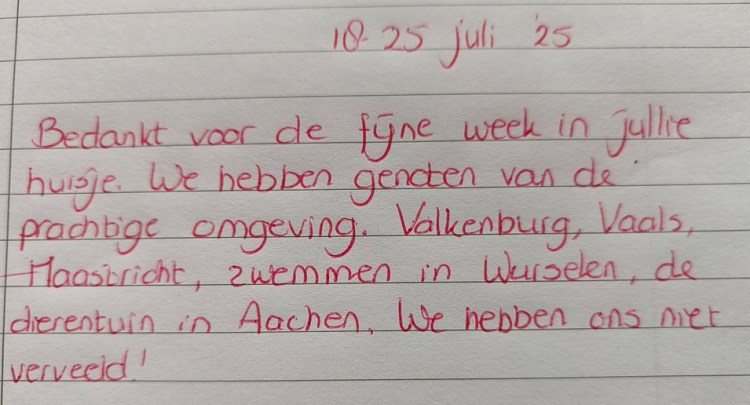 18-25 juli '25
Bedankt voor de fijne week in jullie
huisje. We hebben genoten van de
prachtige omgeving. Valkenburg, Vaals,
Maastricht, zwemmen in Wurselen, de
dierentuin in Aachen. We hebben ons niet
verveeld!